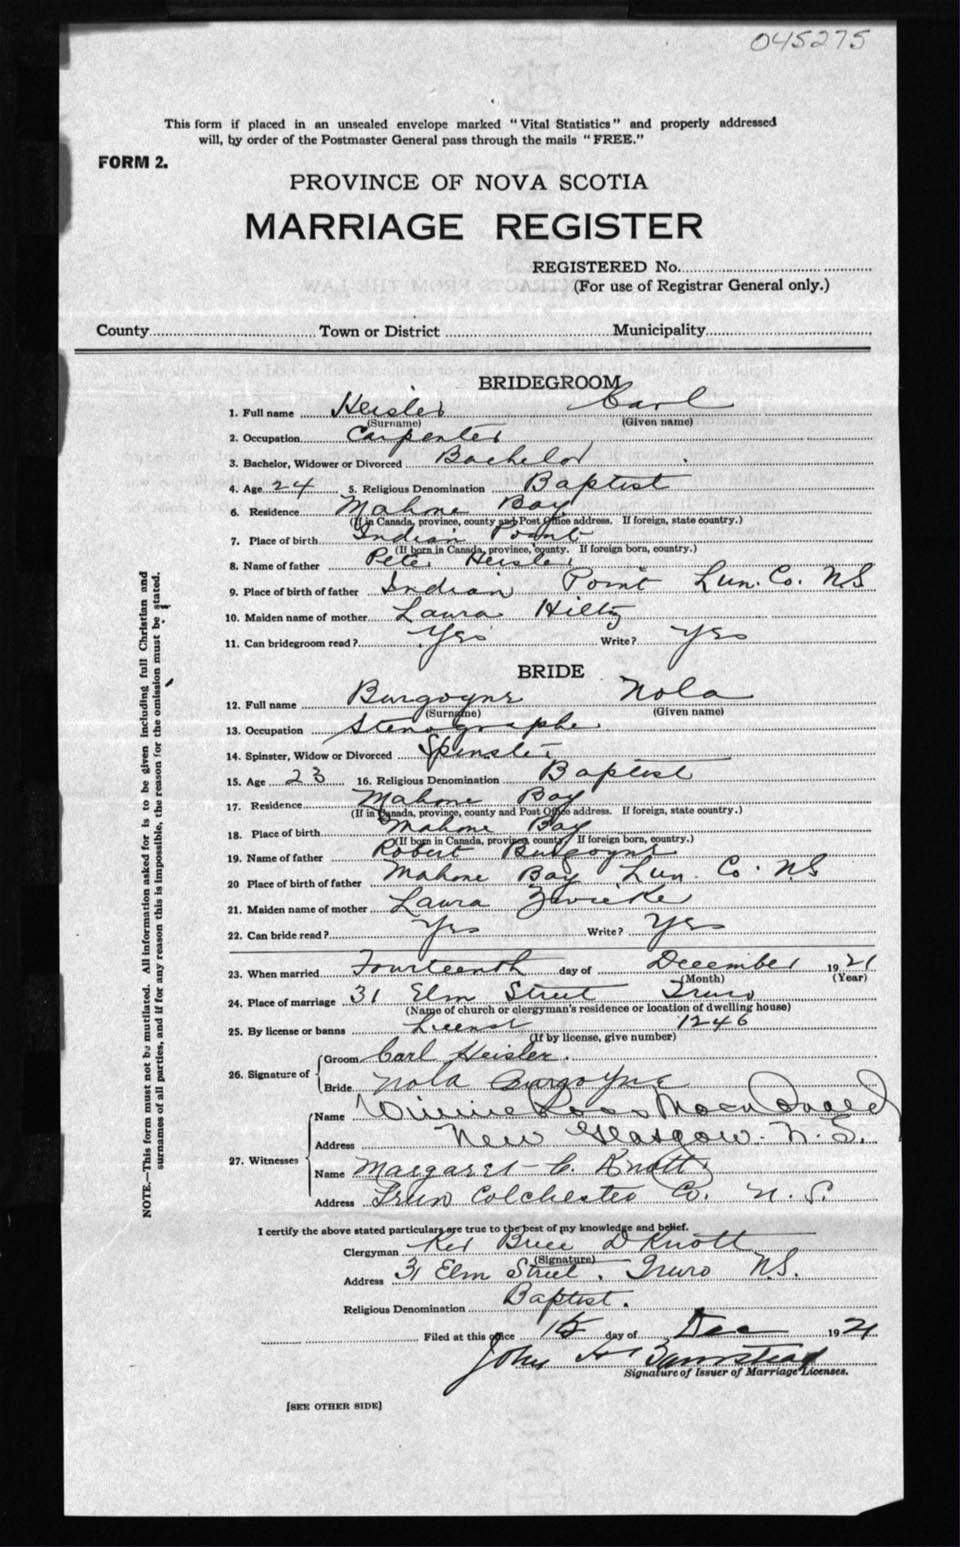 045275
This form if placed in an unsealed envelope marked "Vital Statistics" and properly addressed
will, by order of the Postmaster General pass through the mails "FREE."
FORM 2.
PROVINCE OF NOVA SCOTIA
MARRIAGE REGISTER
REGISTERED No.
(For use of Registrar General only.)
County Town or District Municipality
BRIDEGROOM
1. Full name Heisler Carl
(Surname) (Given name)
2. Occupation Carpenter
3. Bachelor, Widower or Divorced Bachelor
4. Age 24 5. Religious Denomination Baptist
6. Residence Mahone Bay
(If in Canada, province, county and Post Office address. If foreign, state country.)
7. Place of birth Indian Point
(If born in Canada, province, county. If foreign born, country.)
8. Name of father Peter Heisler
9. Place of birth of father Indian Point Lun. Co. NS
10. Maiden name of mother Laura Hiltz
11. Can bridegroom read? Yes Write? Yes
BRIDE
12. Full name Burgoyne Nola
(Surname) (Given name)
13. Occupation Stenographer
14. Spinster, Widow or Divorced Spinster
15. Age 23 16. Religious Denomination Baptist
17. Residence Mahone Bay
(If in Canada, province, county and Post Office address. If foreign, state country.)
18. Place of birth Mahone Bay
(If born in Canada, province, county. If foreign born, country.)
19. Name of father Robert Burgoyne
20 Place of birth of father Mahone Bay Lun. Co. NS
21. Maiden name of mother Laura Zwicker
22. Can bride read? Yes Write? Yes
23. When married Fourteenth day of December 1921
(Month) (Year)
24. Place of marriage 31 Elm Street Truro
(Name of church or clergyman's residence or location of dwelling house)
25. By license or banns License 1246
(If by license, give number)
26. Signature of
Groom Carl Heisler.
Bride Nola Burgoyne
27. Witnesses
Name Winnie Ross MacDonald
Address New Glasgow. N.S.
Name Margaret C. Knott
Address Truro Colchester Co. N.S.
I certify the above stated particulars are true to the best of my knowledge and belief.
Clergyman Rev Brice D Knott
(Signature)
Address 31 Elm Street. Truro N.S.
Religious Denomination Baptist.
Filed at this office 15 day of Dec 1921
John H
Signature of Issuer of Marriage Licenses.
[SEE OTHER SIDE]
NOTE.—This form must not be mutilated. All information asked for is to be given including full Christian and
surnames of all parties, and if for any reason this is impossible, the reason for the omission must be stated.